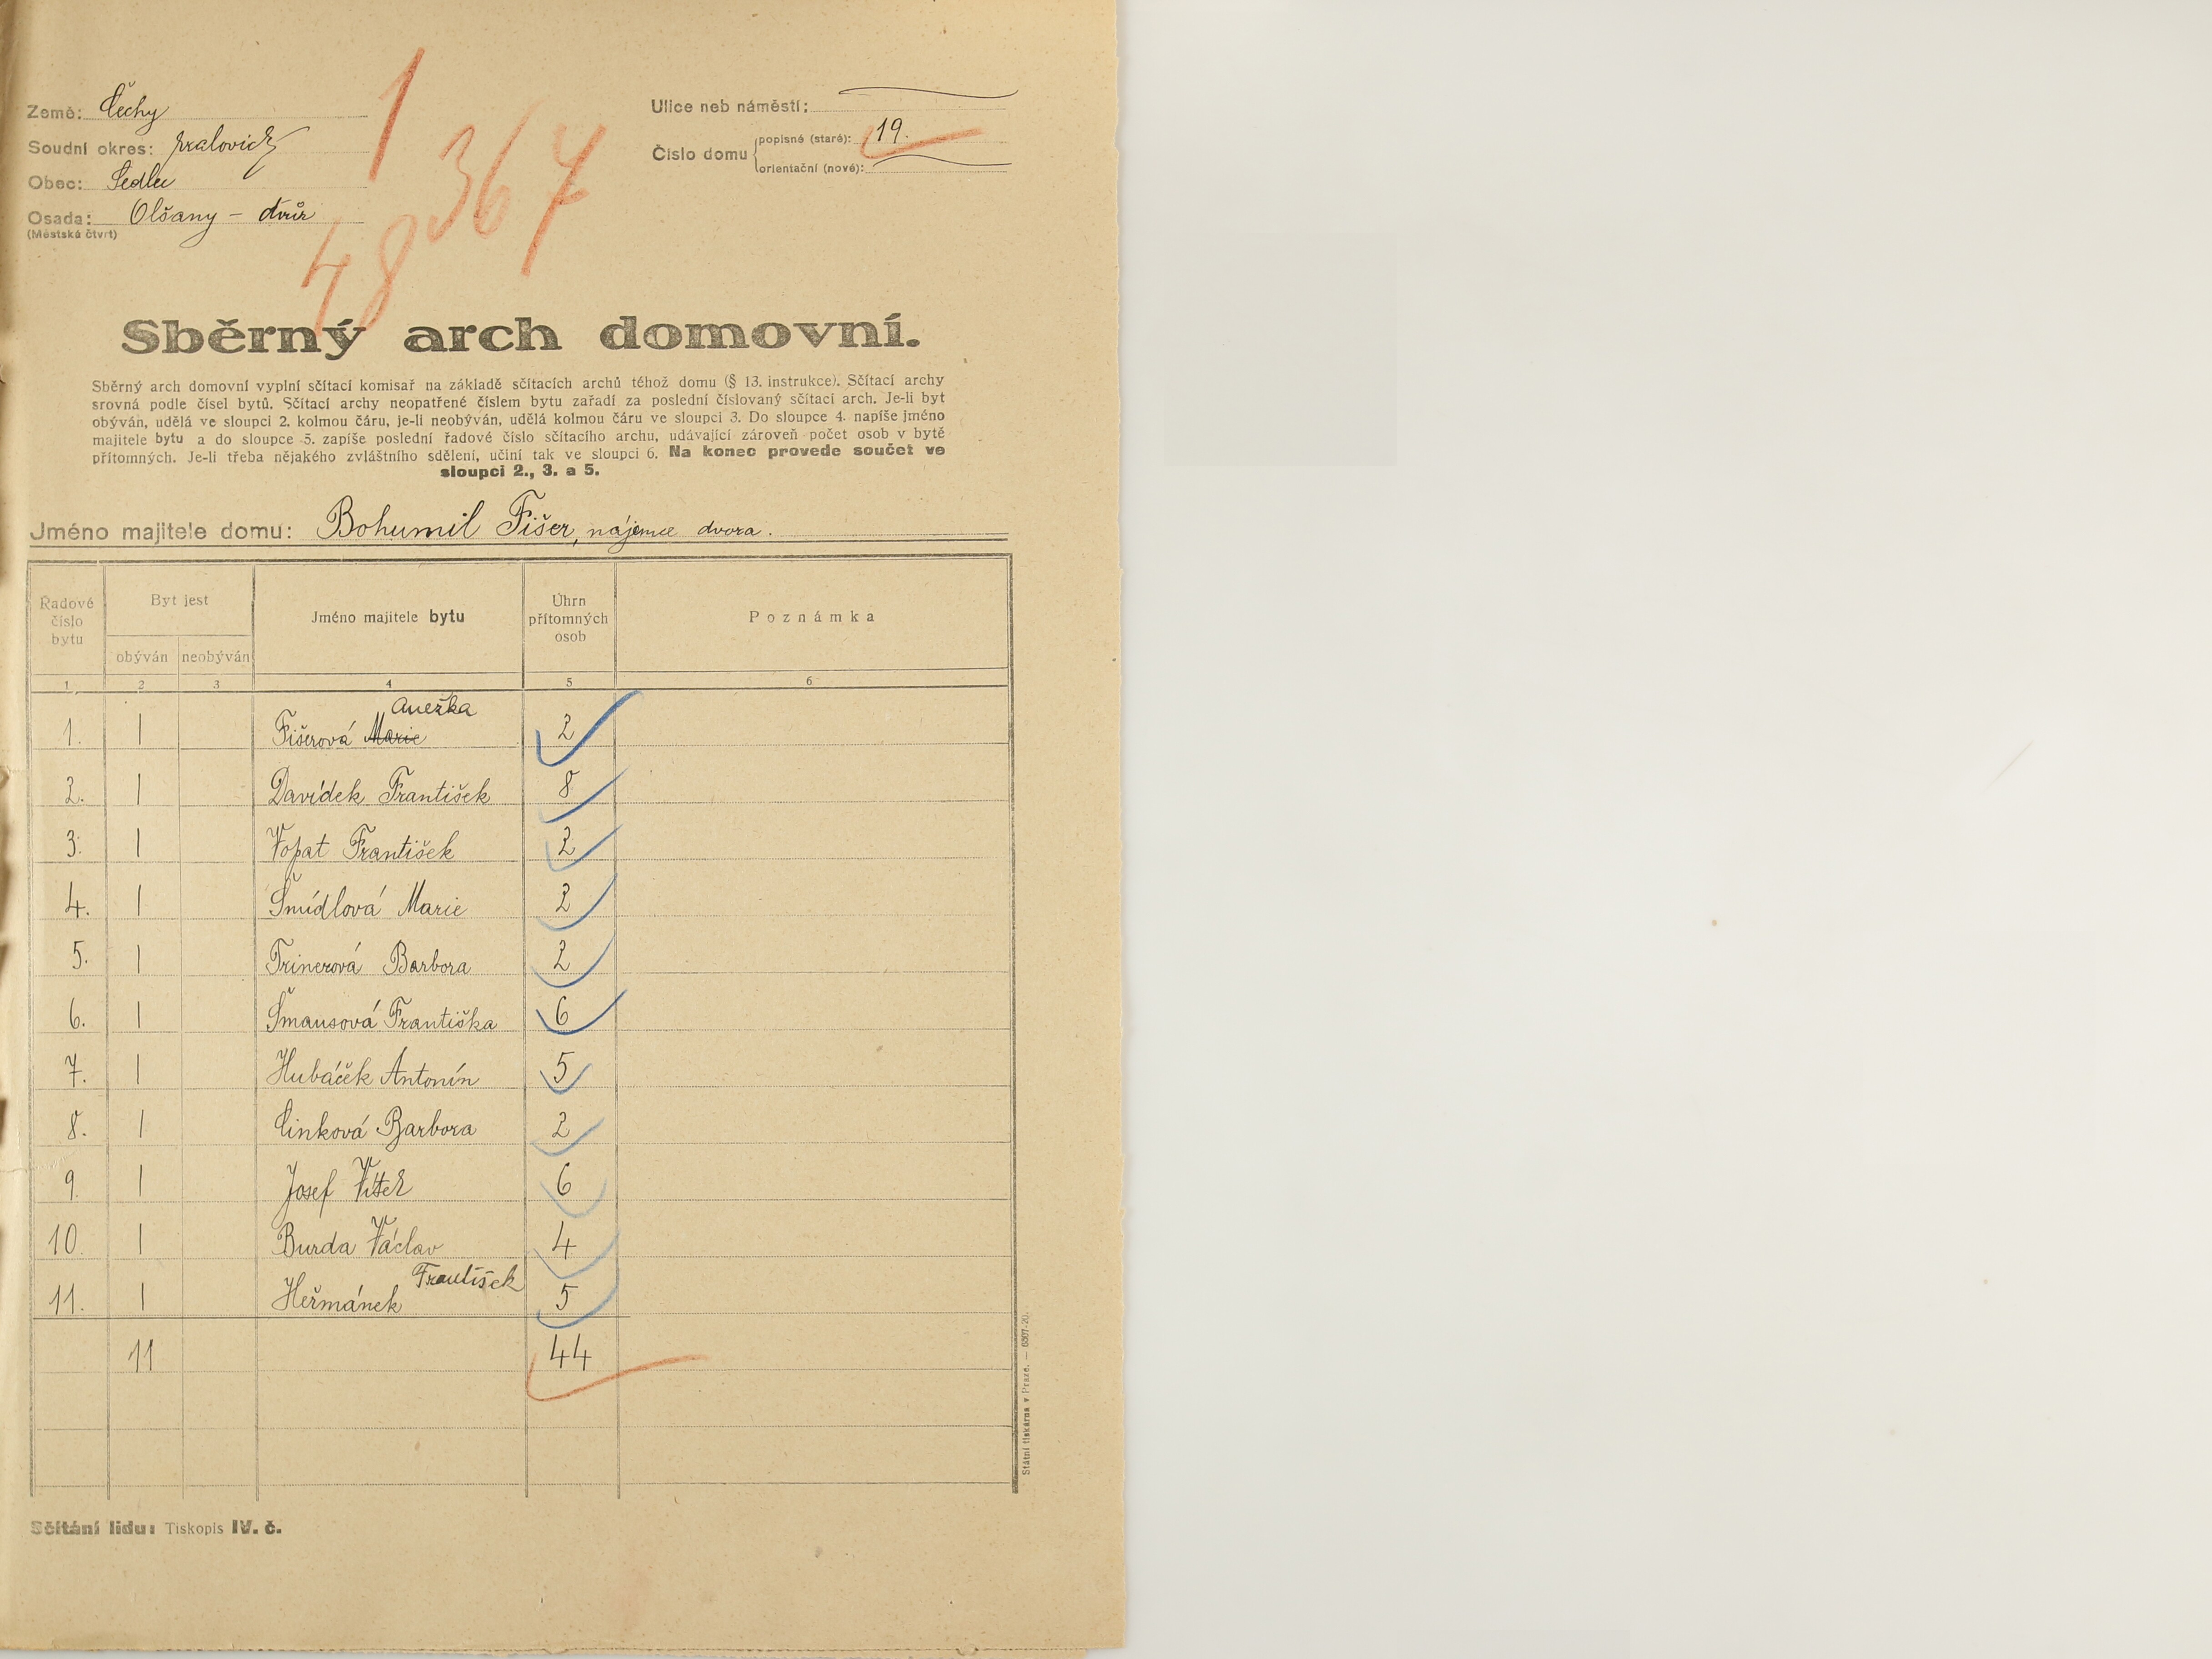 1
367
48
Země: Čechy
Soudní okres: Kralovick
Obec: Sedlec
Osada: Olšany – dvůr
(Městská čtvrt)
Ulice neb náměstí:
Číslo domu
popisné (staré): 19.
orientační (nové):
Sběrný arch domovní.
Sběrný arch domovní vyplní sčítací komisař na základě sčítacích archů téhož domu (§ 13. instrukce). Sčítací archy
srovná podle čísel bytů. Sčítací archy neopatřené číslem bytu zařadí za poslední číslovaný sčítací arch. Je-li byt
obýván, udělá ve sloupci 2. kolmou čáru, je-li neobýván, udělá kolmou čáru ve sloupci 3. Do sloupce 4. napíše jméno
majitele bytu a do sloupce 5. zapíše poslední řadové číslo sčítacího archu, udávající zároveň počet osob v bytě
přítomných. Je-li třeba nějakého zvláštního sdělení, učiní tak ve sloupci 6. Na konec provede součet ve
sloupci 2., 3. a 5.
Jméno majitele domu: Bohumil Fišer, nájemce dvora.
Řadové číslo bytu
Byt jest
obýván
neobýván
Jméno majitele bytu
Úhrn přítomných osob
Poznámka
1 2 3 4 5 6
Anežka
1. | Fišerová Marie 2
2. | Davídek František 8
3. | Vopat František 2
4. | Šmídlová Marie 2
5. | Trinerová Barbora 2
6. | Šmausová Františka 6
7. | Hubáček Antonín 5
8. | Cinková Barbora 2
9. | Josef Vítek 6
10. | Burda Václav 4
František
11. | Heřmánek 5
11 44
Státní tiskárna v Praze. — 6507-20.
Sčítání lidu: Tiskopis IV. č.